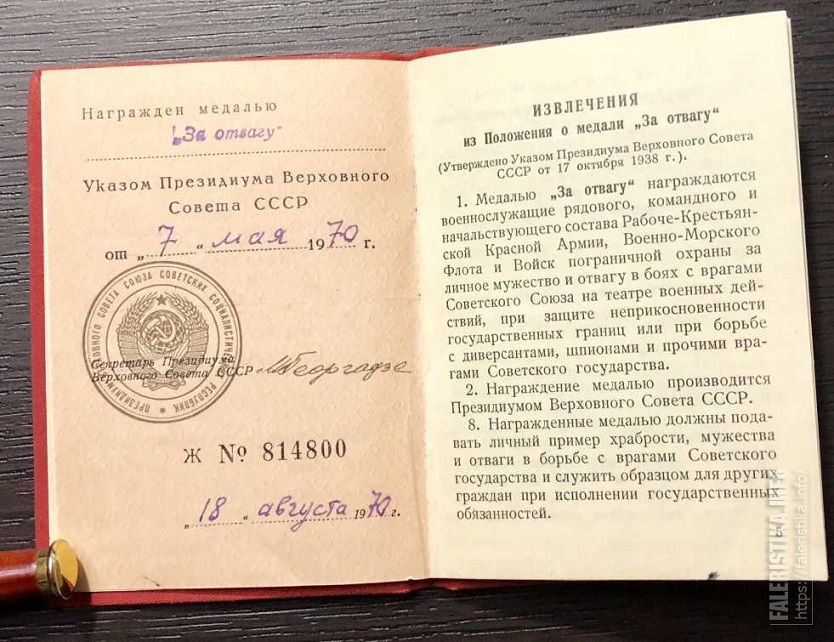 Награжден медалью
„За отвагу“
Указом Президиума Верховного
Совета СССР
от „ 7 “ мая 1970 г.
ПРЕЗИДИУМ ВЕРХОВНОГО СОВЕТА СОЮЗА СОВЕТСКИХ СОЦИАЛИСТИЧЕСКИХ РЕСПУБЛИК
Секретарь Президиума
Верховного Совета СССР МГеоргадзе
Ж № 814800
„ 18 “ августа 1970 г.
ИЗВЛЕЧЕНИЯ
из Положения о медали „За отвагу“
(Утверждено Указом Президиума Верховного Совета
СССР от 17 октября 1938 г.).
1. Медалью „За отвагу“ награждаются
военнослужащие рядового, командного и
начальствующего состава Рабоче-Крестьян-
ской Красной Армии, Военно-Морского
Флота и Войск пограничной охраны за
личное мужество и отвагу в боях с врагами
Советского Союза на театре военных дей-
ствий, при защите неприкосновенности
государственных границ или при борьбе
с диверсантами, шпионами и прочими вра-
гами Советского государства.
2. Награждение медалью производится
Президиумом Верховного Совета СССР.
8. Награжденные медалью должны пода-
вать личный пример храбрости, мужества
и отваги в борьбе с врагами Советского
государства и служить образцом для других
граждан при исполнении государственных
обязанностей.
FALERISTIKA.INFO
https://faleristika.info/